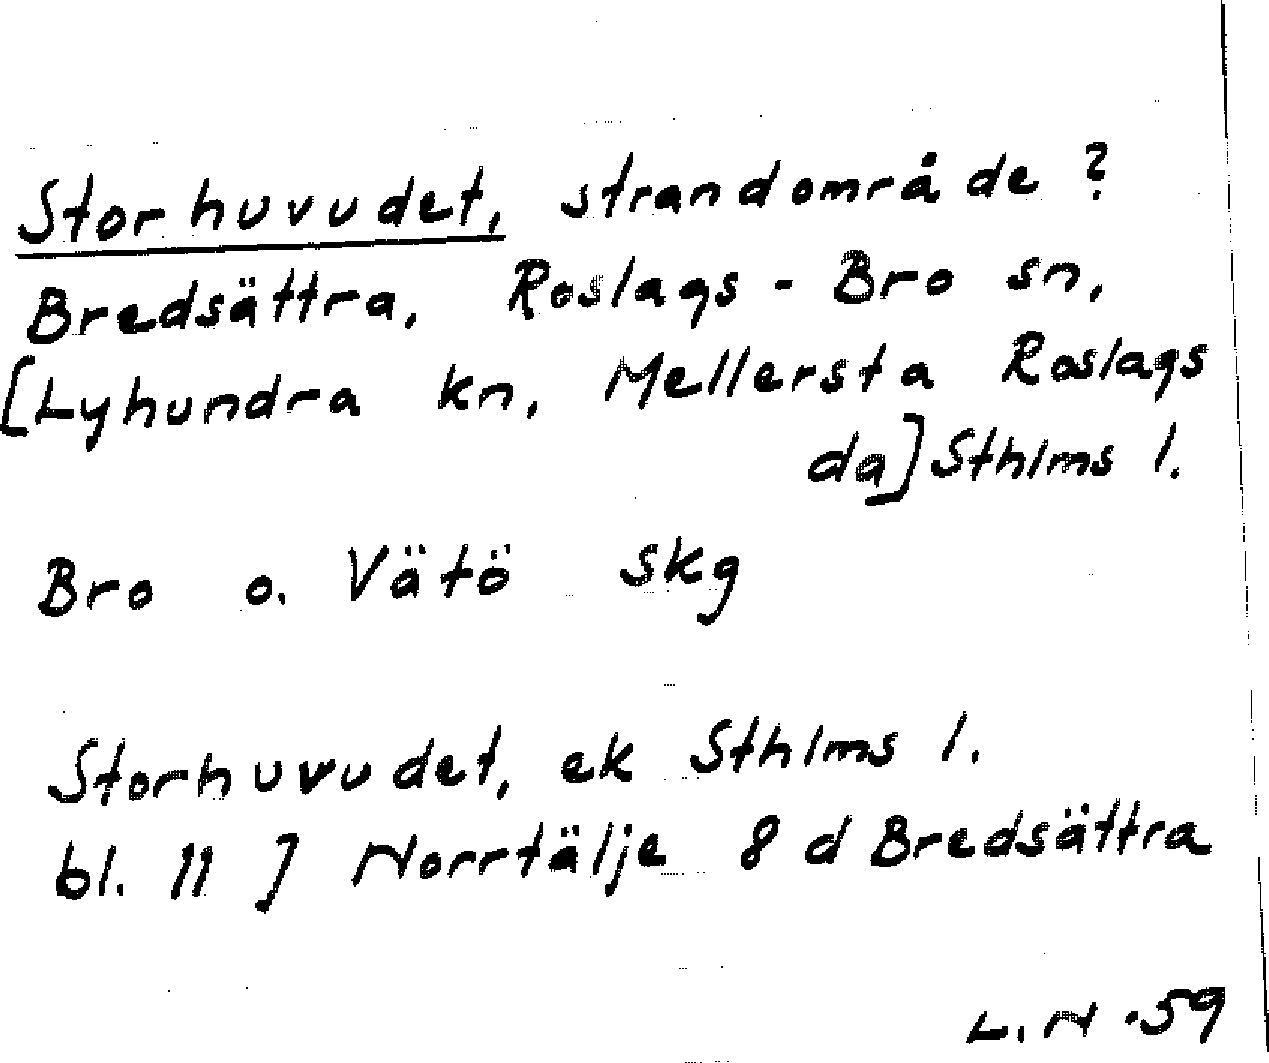 Storhuvudet, strandområde?
Bredsättra, Roslags-Bro sn,
[Lyhundra kn, Mellersta Roslags
da] Sthlms l.
Bro o. Vätö skg
Storhuvudet, ek Sthlms l.
bl. 11 J Norrtälje 8 d Bredsättra
L.N. 59